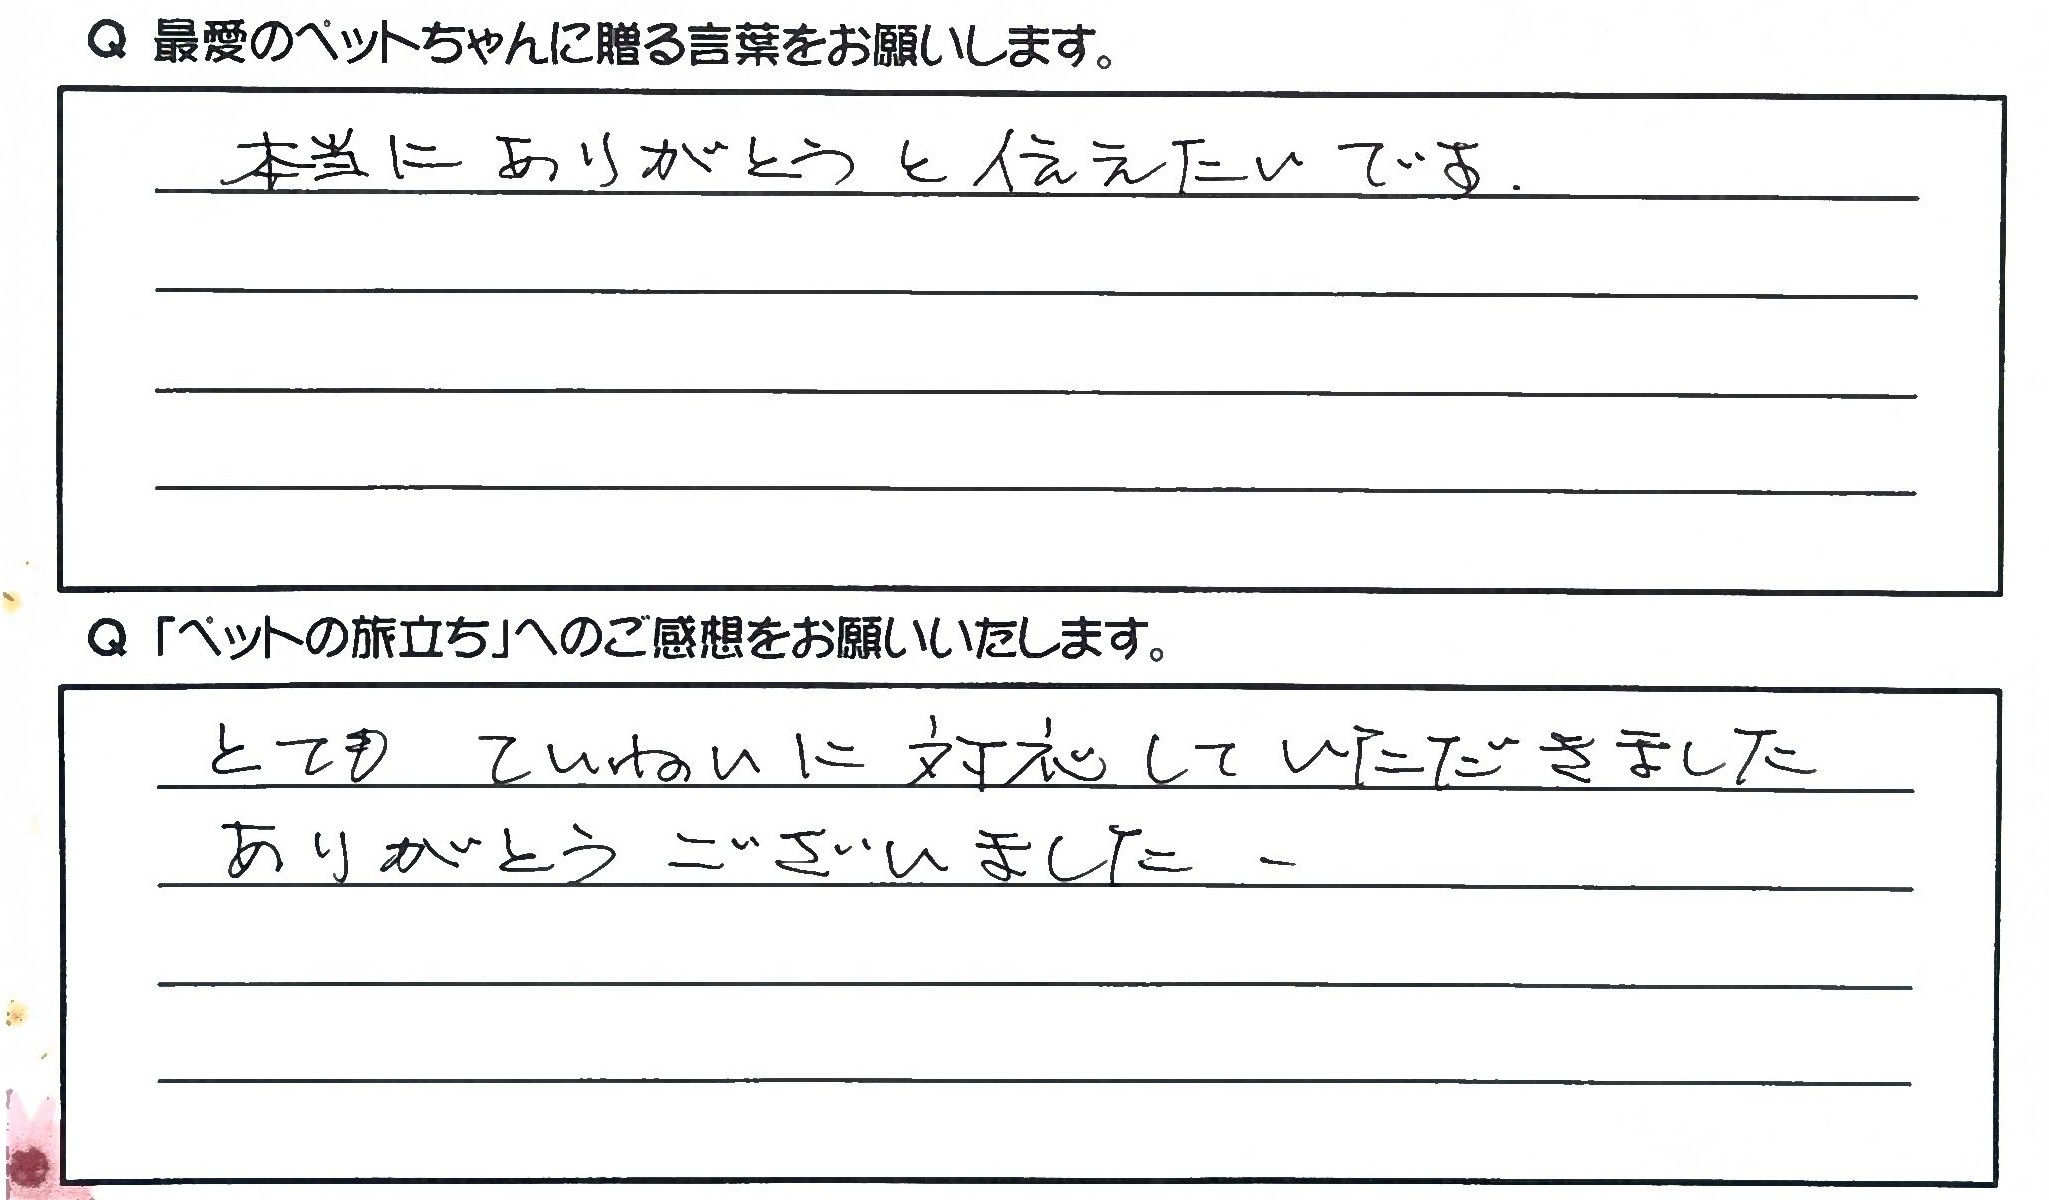 Q 最愛のペットちゃんに贈る言葉をお願いします。
本当に ありがとう と 伝えたい です.
Q 「ペットの旅立ち」へのご感想をお願いいたします。
とても ていねいに 対応 して いただきました
ありがとう ございました -